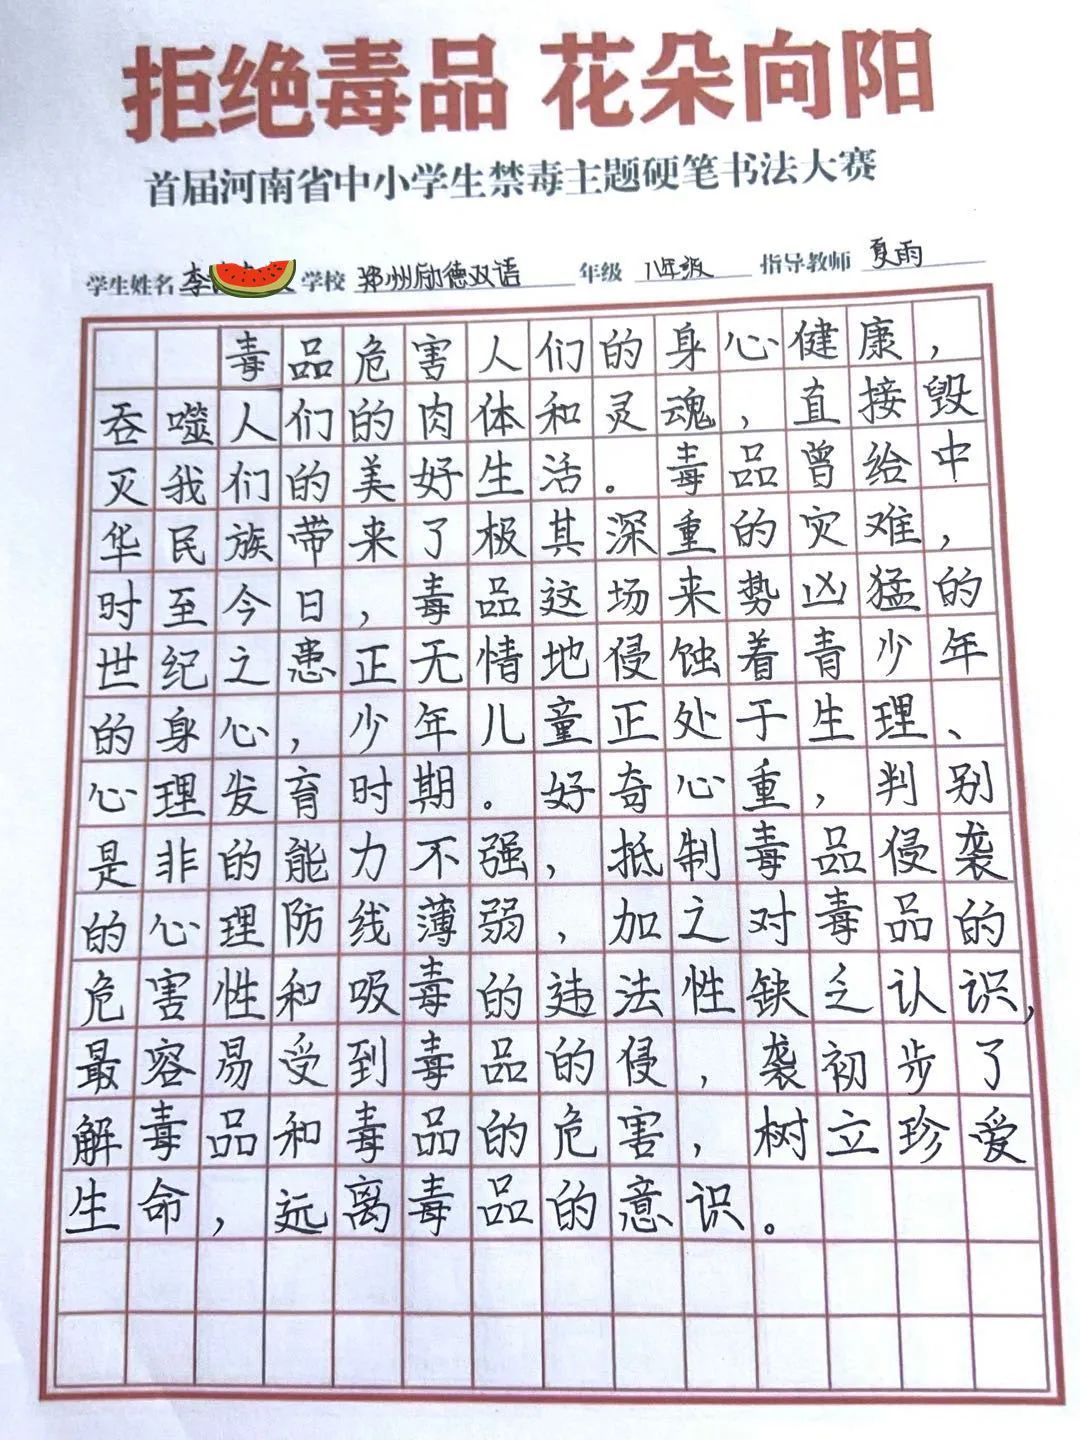 拒绝毒品 花朵向阳
首届河南省中小学生禁毒主题硬笔书法大赛
学生姓名 李 学校 郑州励德双语 年级 八年级 指导教师 夏雨
毒品危害人们的身心健康，
吞噬人们的肉体和灵魂，直接毁
灭我们的美好生活。毒品曾给中
华民族带来了极其深重的灾难，
时至今日，毒品这场来势凶猛的
世纪之患正无情地侵蚀着青少年
的身心，少年儿童正处于生理、
心理发育时期。好奇心重，判别
是非的能力不强，抵制毒品侵袭
的心理防线薄弱，加之对毒品的
危害性和吸毒的违法性缺乏认识，
最容易受到毒品的侵，袭初步了
解毒品和毒品的危害，树立珍爱
生命，远离毒品的意识。